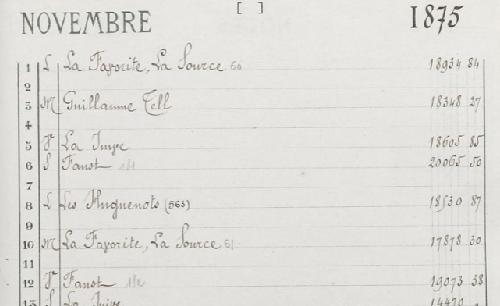 NOVEMBRE [ ] 1875
1 L La Favorite, La Source 60 18934 84
2
3 M Guillaume Tell 18348 27
4
5 V La Juive 18605 85
6 S Faust 181 20065 50
7
8 L Les Huguenots (563) 18530 87
9
10 M La Favorite, La Source 61 17878 30
11
12 V Faust 182 19073 38
13 S La Juive 14470